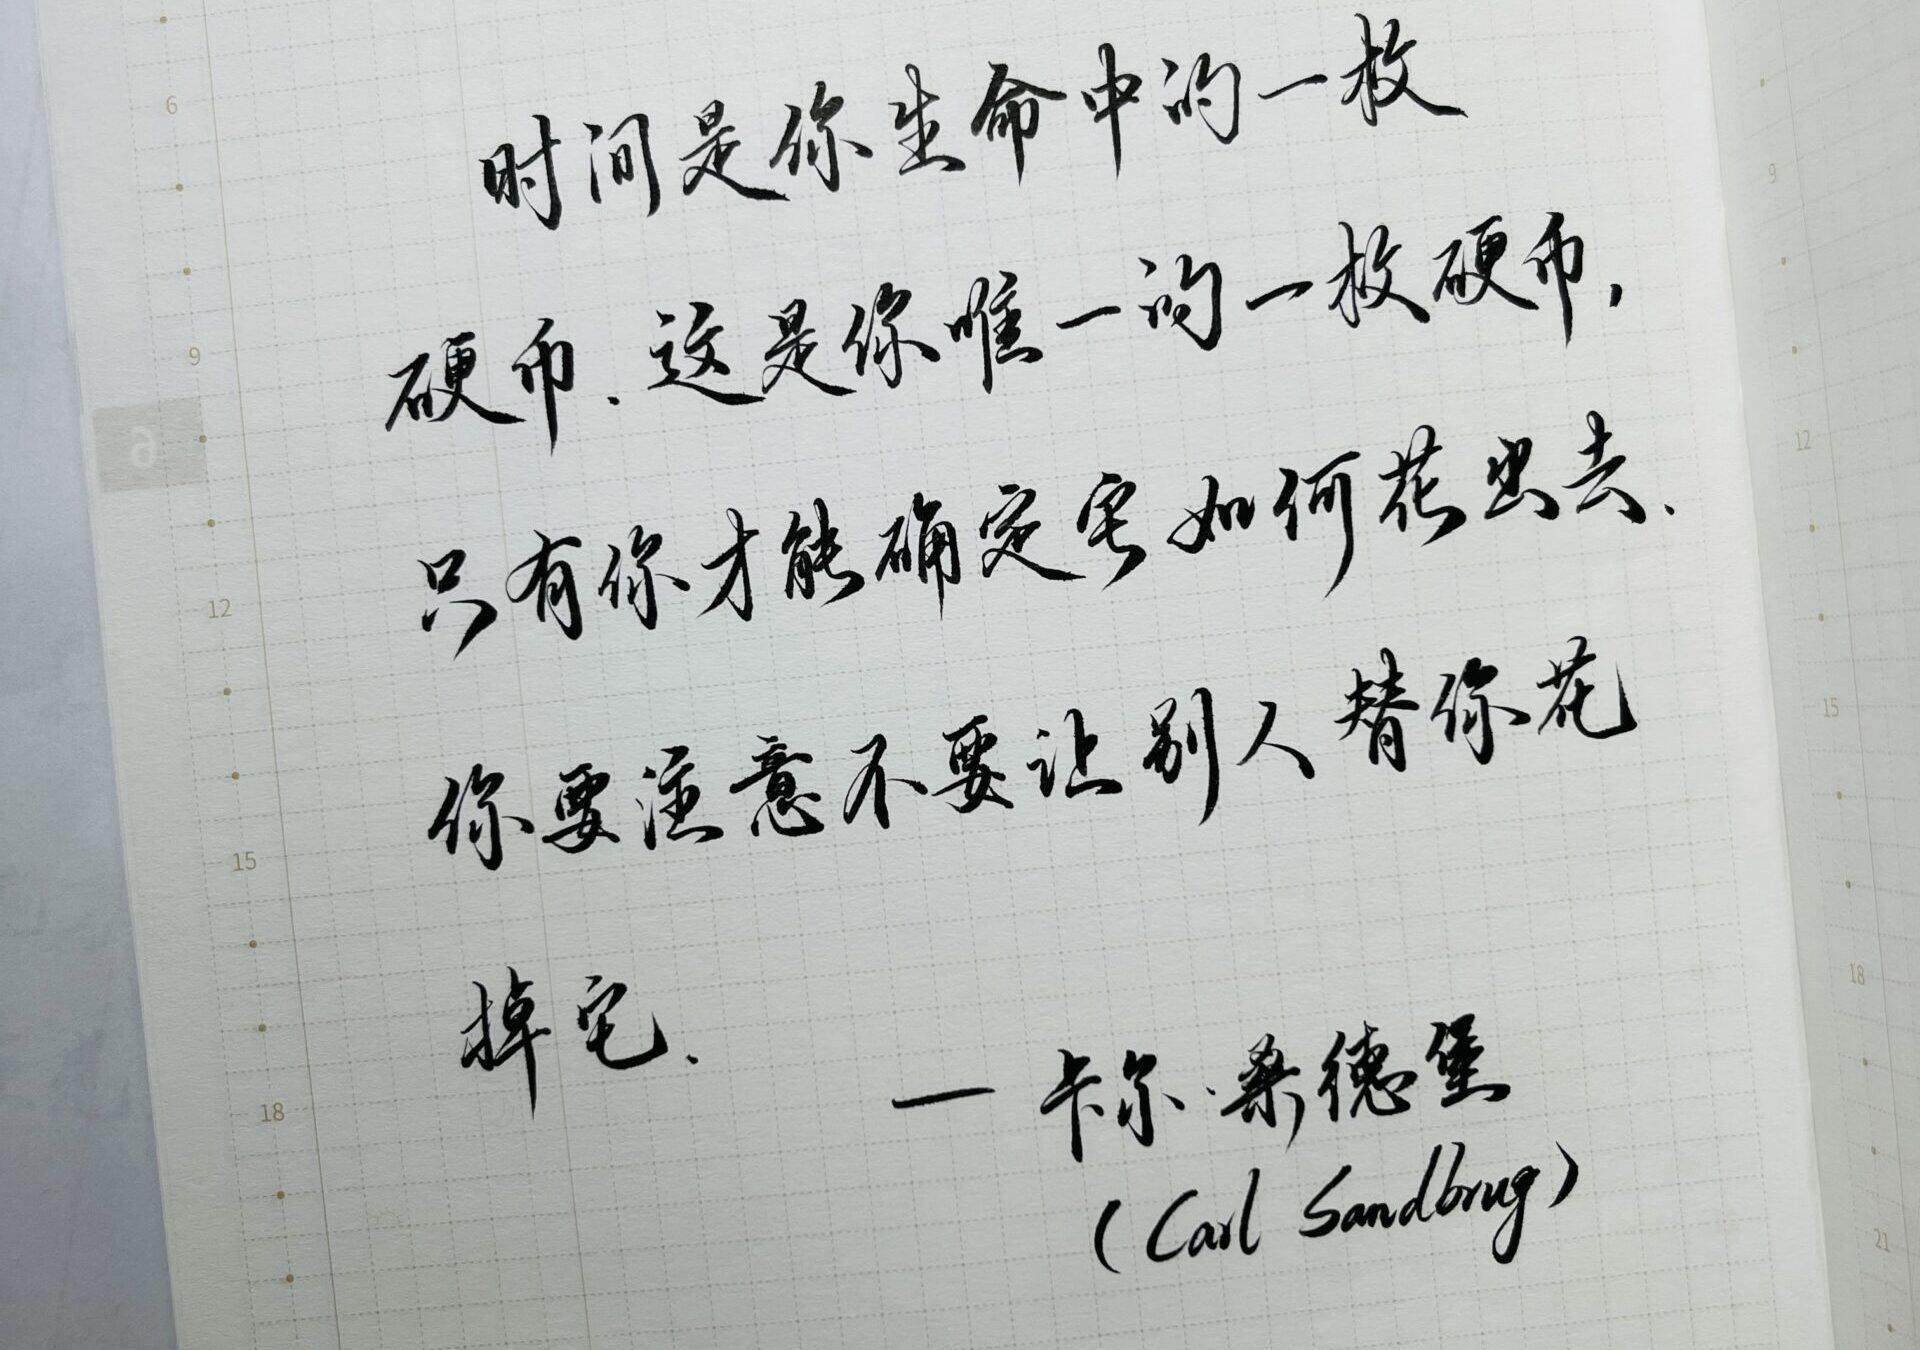 6
时间是你生命中的一枚
9
硬币.这是你唯一的一枚硬币,
6
12
只有你才能确定它如何花出去.
15
你要注意不要让别人替你花
18
掉它.
— 卡尔·桑德堡
(Carl Sandbrug)
9
12
15
18
21